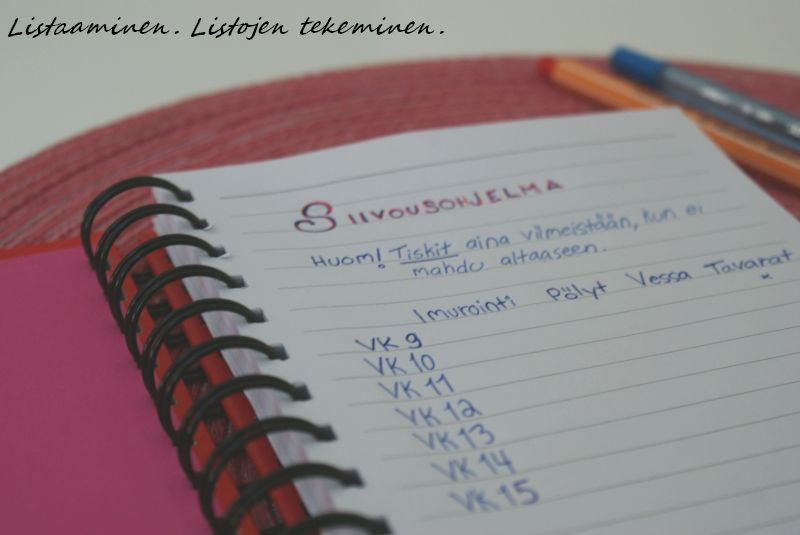 Listaaminen. Listojen tekeminen.
SIIVOUSOHJELMA
HUOM! Tiskit aina viimeistään, kun ei
mahdu altaaseen.
Imurointi Pölyt Vessa Tavarat
VK 9
VK 10
VK 11
VK 12
VK 13
VK 14
VK 15